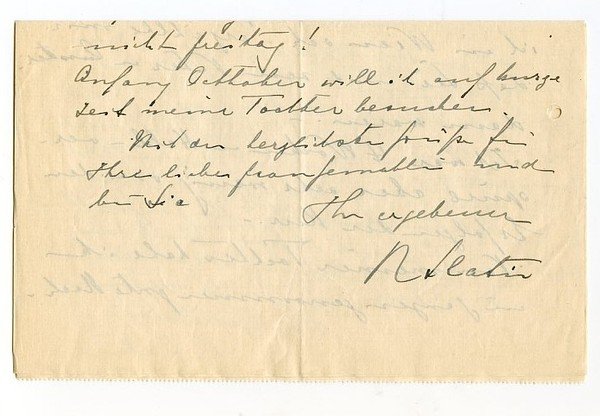 nicht freitag!
Anfang Octtober will ich auf kurze
Zeit meine Tochter besuchen.
Mit den herzlichsten Grüße für
Ihre liebe frau gemahlin und
Sie
Ihr ergebener
R Slatin